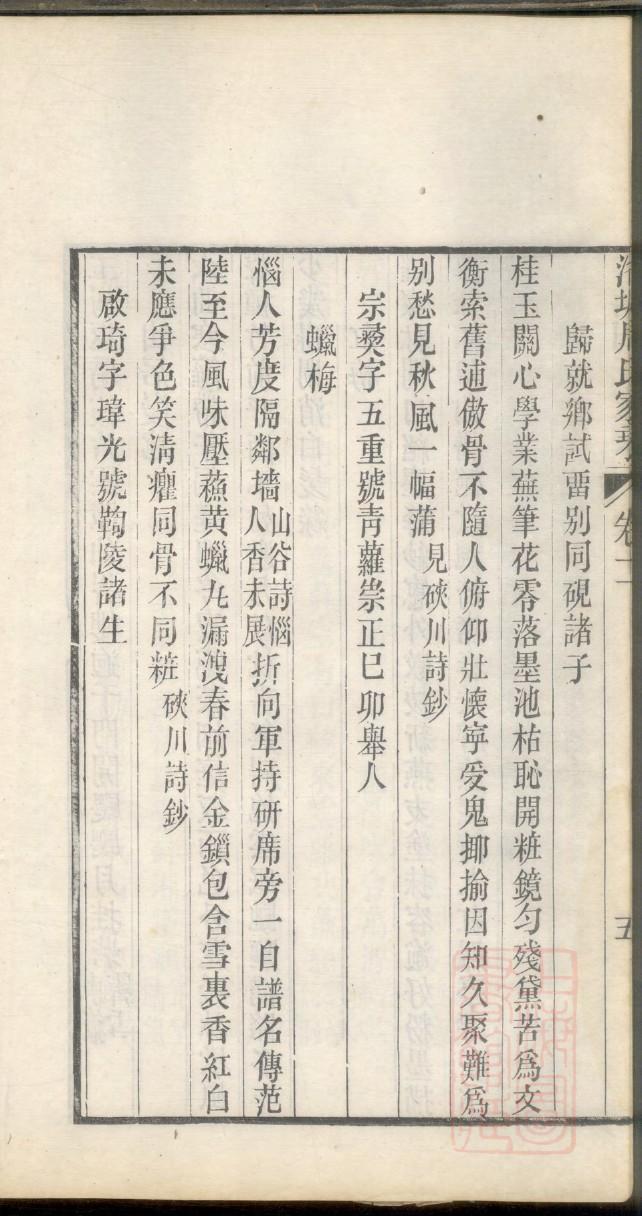 周氏家
歸就鄉試畱别同硯諸子
桂玉關心學業蕪筆花零落墨池枯恥開粧鏡勻殘黛苦爲文
衡索舊逋傲骨不隨人俯仰壯懷寜受鬼揶揄因知久聚難爲
别愁見秋風一幅蒲見硤川詩鈔
宗彛字五重號青蘿崇正巳卯舉人
蠟梅
惱人芳度隔鄰墻山谷詩惱人香未展折向軍持研席旁一自譜名傳范
陸至今風味壓蘓黄蠟丸漏洩春前信金鎻包含雪裏香紅白
未應爭色笑淸癯同骨不同粧硤川詩鈔
啟琦字瑋光號鞠陵諸生